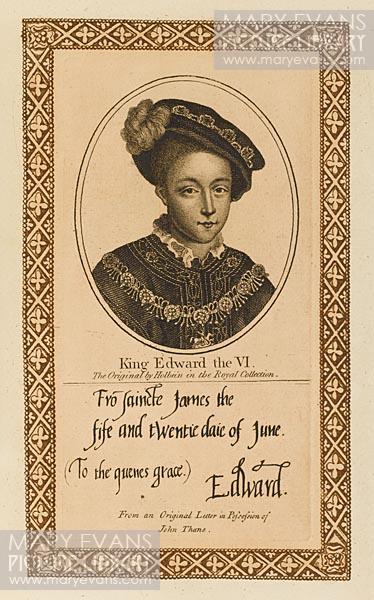 MARY EVANS
PICTURE LIBRARY
www.maryevans.com
King Edward the VI.
The Original by Holbein in the Royal Collection.
Frō saincte James the
fife and twentie daie of June.
(To the quenes grace.)
Edward.
From an Original Letter in Possession of
John Thane.
MARY EVANS
PICTURE LIBRARY
www.maryevans.com